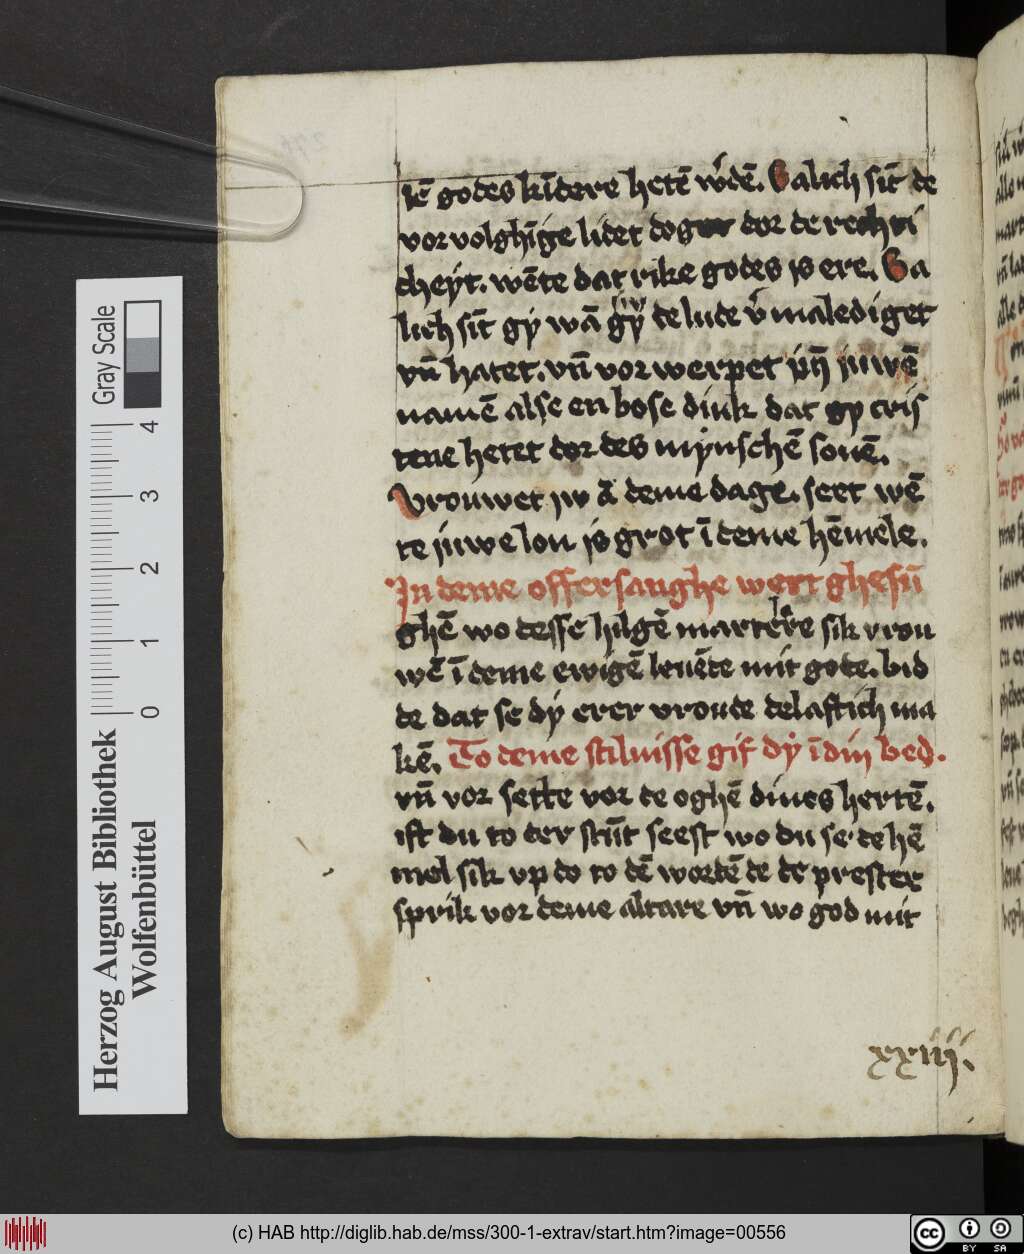 lē godes kīdere hetē w'dē. Salich sīt de
vor volghīge lidet doget dor de rechti
cheyt. wēte dat rike godes is ere. Sa
lich sīt gy wā gy de lude v' maledi get
vn̄ hatet. vn̄ vor werpet juwē
namē alse en bose dink dat gy cris
tene hetet dor des mynschē sonē.
Vrouwet iw ā deme dage. seet wē
te juwe lon is grot ī deme hēmele.
In deme offersanghe wert ghesū
ghē wo desse hilgē martelere sik vrou
wē ī deme ewigē leuēde mit gode. bid
de dat se dy erer vroude delaftich ma
kē. To deme stilnisse gif dy ī din bed.
vn̄ vor sette vor de oghē dines hertē.
ift du to der stūt seest wo du se de hē
mel sik vp do to dē wordē de de prester
sprik vor deme altare vn̄ wo god mit
xxiiij.
Herzog August Bibliothek
Wolfenbüttel
0 1 2 3 4
Gray Scale
(c) HAB http://diglib.hab.de/mss/300-1-extrav/start.htm?image=00556
cc BY SA